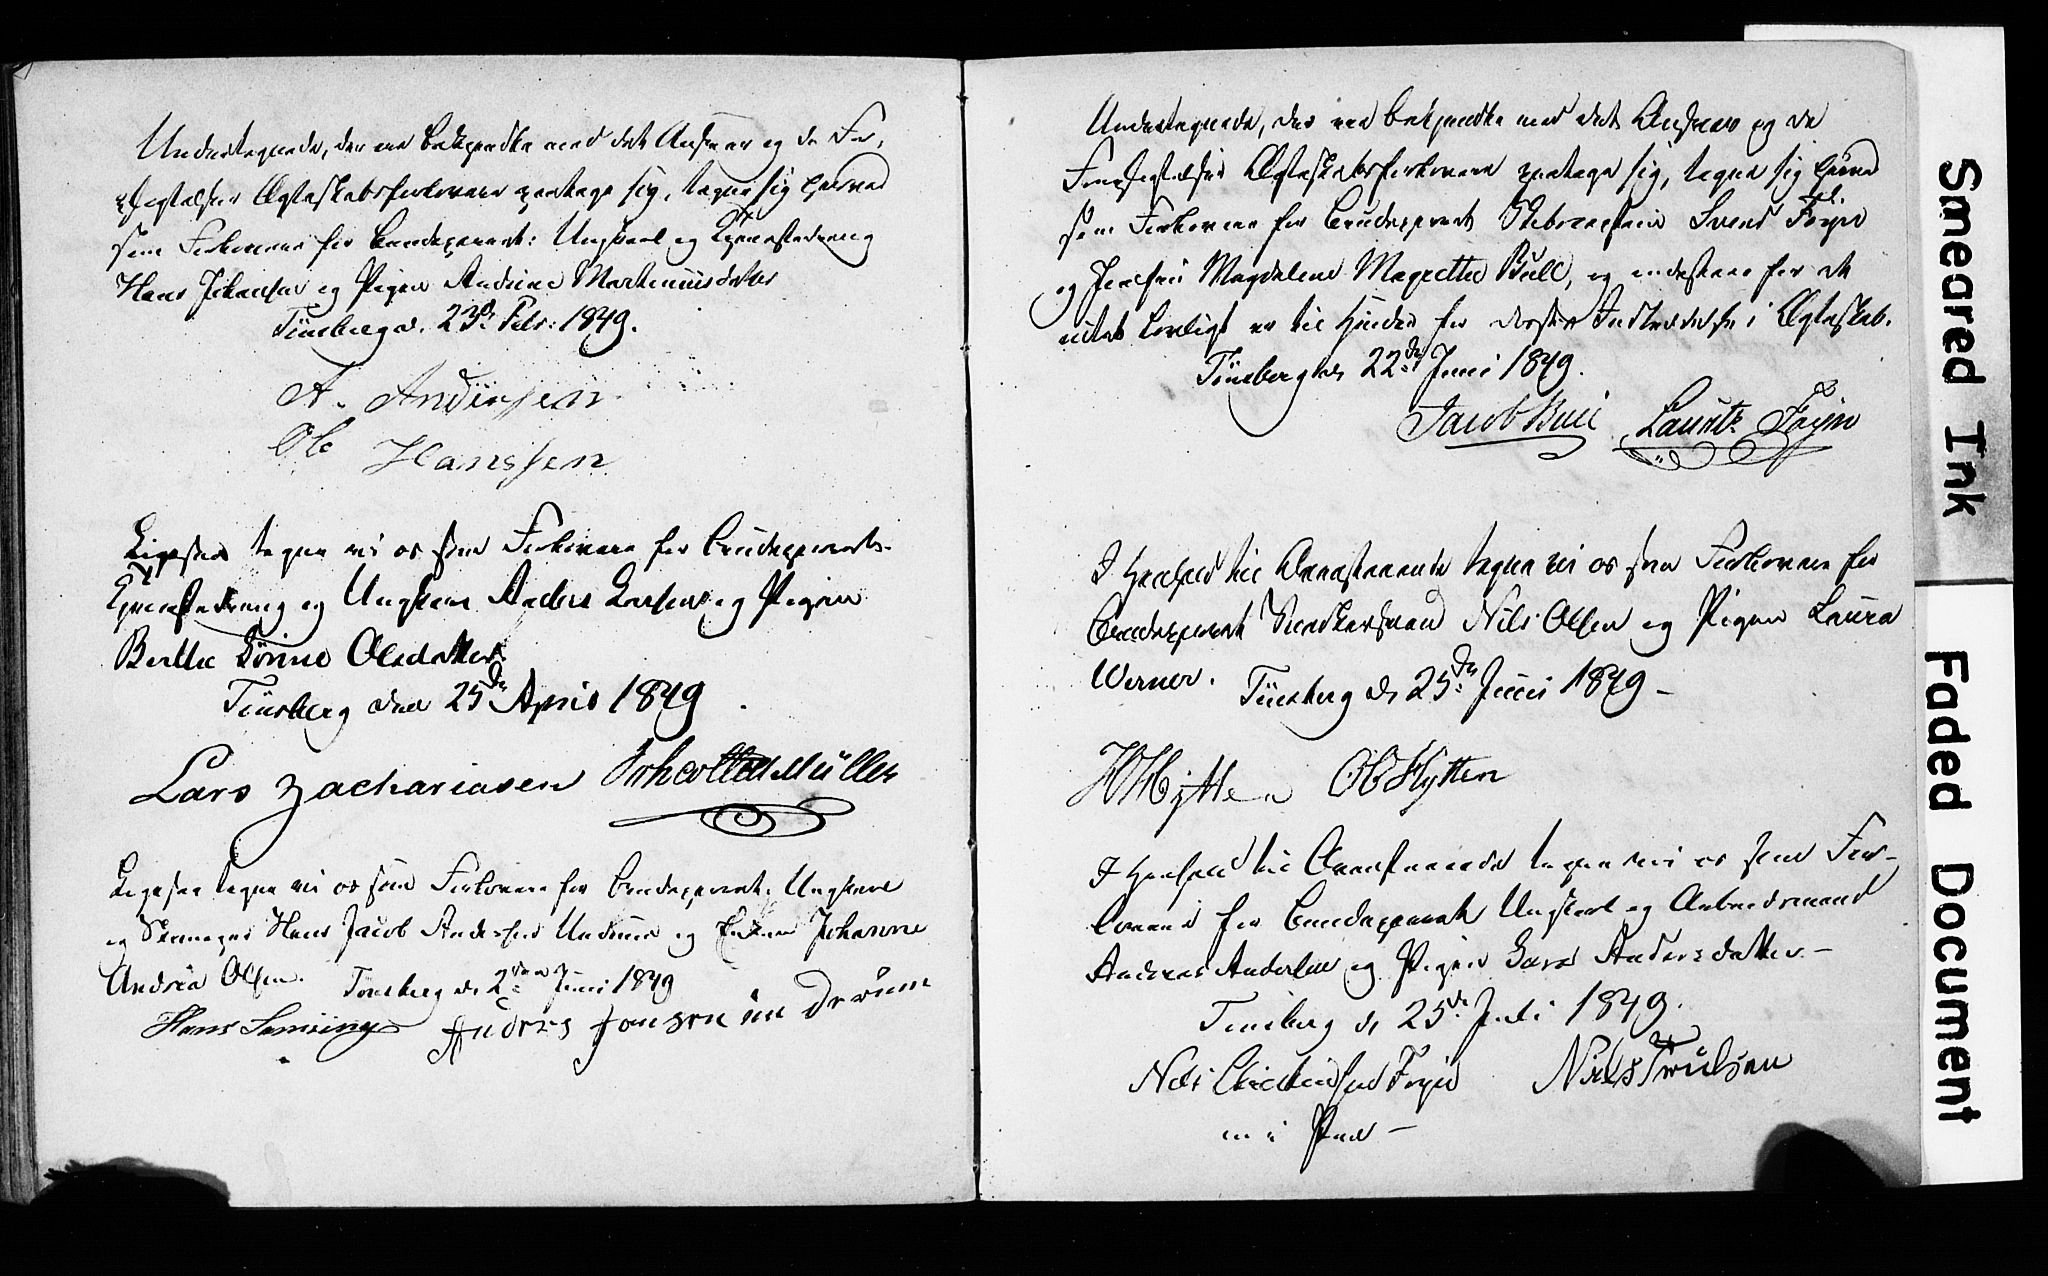 Undertegnede, der ere bekjendte med det Ansvar og de For-
pligtelser Ægteskabsforlovere paatage sig, tegne sig herved
som Forlovere for Brudeparret: Ungkarl og
Hans Johansen og Pigen Andrine Martinusdatter
Tønsberg d. 23de Febr: 1849.
A. Andersen
Ole Hanssen
Ligesaa tegne vi os som Forlovere for Brudeparret
og Ungkarl Anders Larsen og Pigen
Berthe Lovise Olsdatter.
Tønsberg den 25de April 1849
Lars Zachariasen Müller
Ligesaa tegne vi os som Forlovere for Brudeparret, Ungkarl
og Hans Jacob Andersen og Enken Johanne
Andrea Olsen. Tønsberg d. 2den Juni 1849
Hans Anders Jansen
Undertegnede, der ere bekjendte med det Ansvar og de
Forpligtelser Ægteskabsforlovere paatage sig, tegne sig herved
som Forlovere for Brudeparret Skibscapitain Svend Foyn
og Magdalene Magrethe Bull, og indestaae for at
intet lovligt er til Hinder for deres Indtrædelse i Ægteskab.
Tønsberg d. 22de Juni 1849.
Jacob Bull Lauritz Foyn
I Henhold til Ovenstaaende tegne vi os som Forlovere for
Brudeparret Snedkersvend Nils Olsen og Pigen Laura
Werner. Tønsberg d. 25de Juni 1849 –
H Hytten OB Hytten
I Henhold til Ovenstaaende tegne vi os som For-
lovere for Brudeparret Ungkarl og Arbeidsmand
Andreas Andersen og Pigen Sara Andersdatter. –
Tønsberg d. 25de Juli 1849.
Nils Christensen Foyn Niels Trulsen
m. i Pen –
Smeared Ink
Faded Document